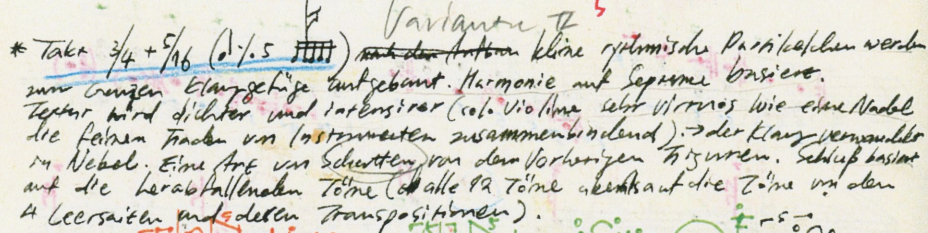 Variante II
* Takt 3/4 + 5/16 ( ) nach den kleine rythmische Partikelchen werden
zum Ganzen Klanggefüge aufgebaut. Harmonie auf Septime basiert.
Textur wird dichter und intensiver (solo Violine sehr virtuos wie eine Nadel
die feinen Faden von Instrumenten zusammenbindend). → der Klang verwandelt
in Nebel. Eine Art von Schatten von dem Vorherigen Figuren. Schluß basiert
auf die herabfallenden Töne (alle 12 Töne auf die Töne von den
4 Leersaiten und deren Transpositionen).